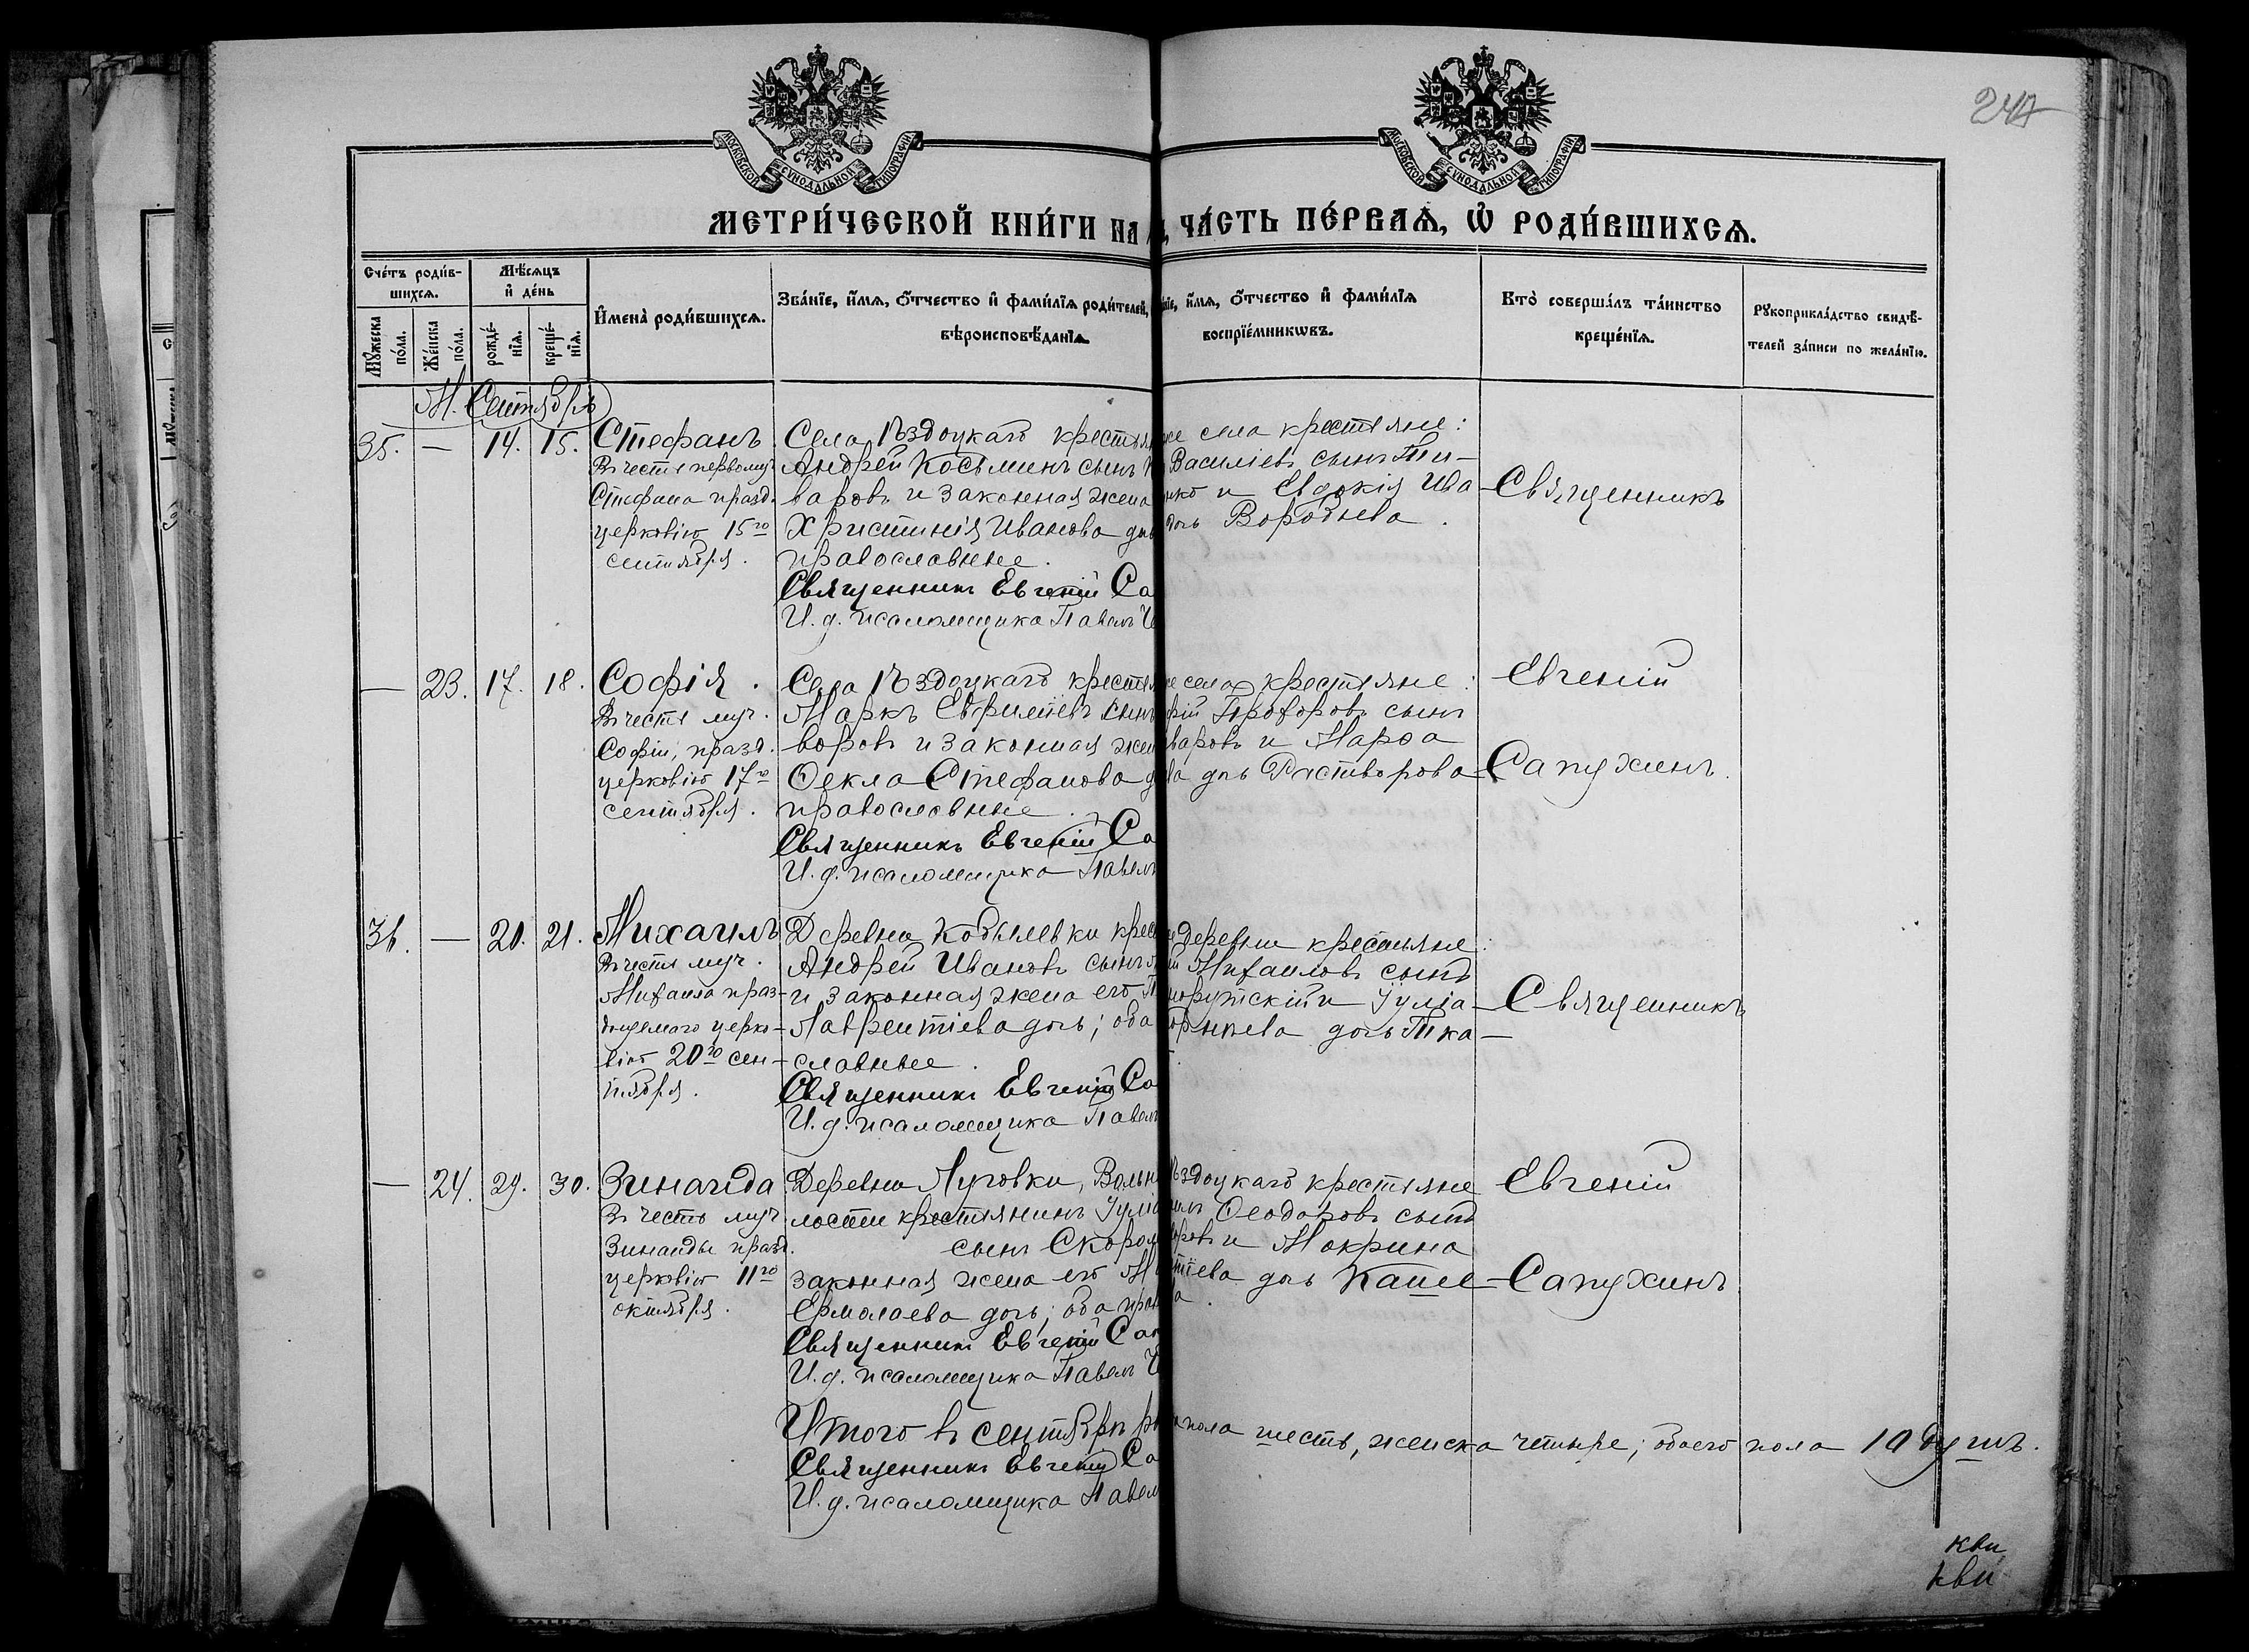 247
МОСКОВСКОЙ СѴНОДАЛЬНОЙ ТИПОГРАФІИ
МОСКОВСКОЙ СѴНОДАЛЬНОЙ ТИПОГРАФІИ
МЕТРИ́ЧЕСКОЙ КНИ́ГИ НА
ЧА́СТЬ ПЕ́РВАѦ, Ѡ РОДИ́ВШИХСѦ.
Сче́тъ роди́в-
шихсѧ.
Мꙋжеска по́ла.
Же́нска по́ла.
Мѣ́сѧцъ
и҆ де́нь
рожде́-
нїѧ.
креще́-
нїѧ.
И҆мена̀ роди́вшихсѧ.
Зва́нїе, и҆́мѧ, ѻ҆́тчество и҆ фами́лїѧ роди́телей,
вѣроисповѣ́данїѧ.
и҆́мѧ, ѻ҆́тчество и҆ фами́лїѧ
воспрїе́мникѡвъ.
Кто̀ соверша́лъ та́инство
креще́нїѧ.
Рꙋкоприкла́дство свидѣ́-
телей за́писи по жела́нїю.
М. Сентябрь
35. — 14. 15. Стефанъ
Въ честь первомуч.
Стефана празд.
церковію 15го
сентября.
Села Ѣздоцкаго крестья
Андрей Косьминъ сынъ
варовъ и законная жена
Христинія Иванова
православные.
Священникъ Евгеній Са
И. д. псаломщика Павелъ
же села крестьяне:
Василіевъ сынъ Ти-
и Евдокія Ива
дочь Воробьева.
Священникъ
— 23. 17. 18. Софія.
Въ честь муч.
Софіи, празд.
церковію 17го
сентября.
Села Ѣздоцкаго крестья
Маркъ Евфиміевъ сынъ
воровъ и законная жен
Ѳекла Стефанова д
православные.
Священникъ Евгеній Са
И. д. псаломщика Павелъ
села крестьяне:
Прохоровъ сынъ
варовъ и Марѳа
дочь Растворова
Евгеній
Сапухинъ.
36. — 20. 21. Михаилъ
Въ честь муч.
Михаила праз-
дуемаго церко-
вію 20го сен-
тября.
Деревни Кобылевки крес
Андрей Ивановъ сынъ
и законная жена его
Лаврентіева дочь; оба
славные.
Священникъ Евгеній Са
И. д. псаломщика Павелъ
деревни крестьяне:
Михаиловъ сынъ
и Іуліа-
дочь Тка-
Священникъ
— 24. 29. 30. Зинаида
Въ честь муч.
Зинаиды празд.
церковію 11го
октября.
Деревни Луговки, Вольн
лости крестьянинъ Іулі
сынъ Скоров
законная жена его М
Ермолаева дочь; оба прав
Священникъ Евгеній Сап
И. д. псаломщика Павелъ
Ѣздоцкаго крестьяне
Ѳеодоровъ сынъ
и Макрина
дочь Каше
Евгеній
Сапухинъ
Итого въ сентябрѣ
Священникъ Евгеній Са
И. д. псаломщика Павел
пола шесть, женска четыре; обоего пола 10 душъ.
кви
кви